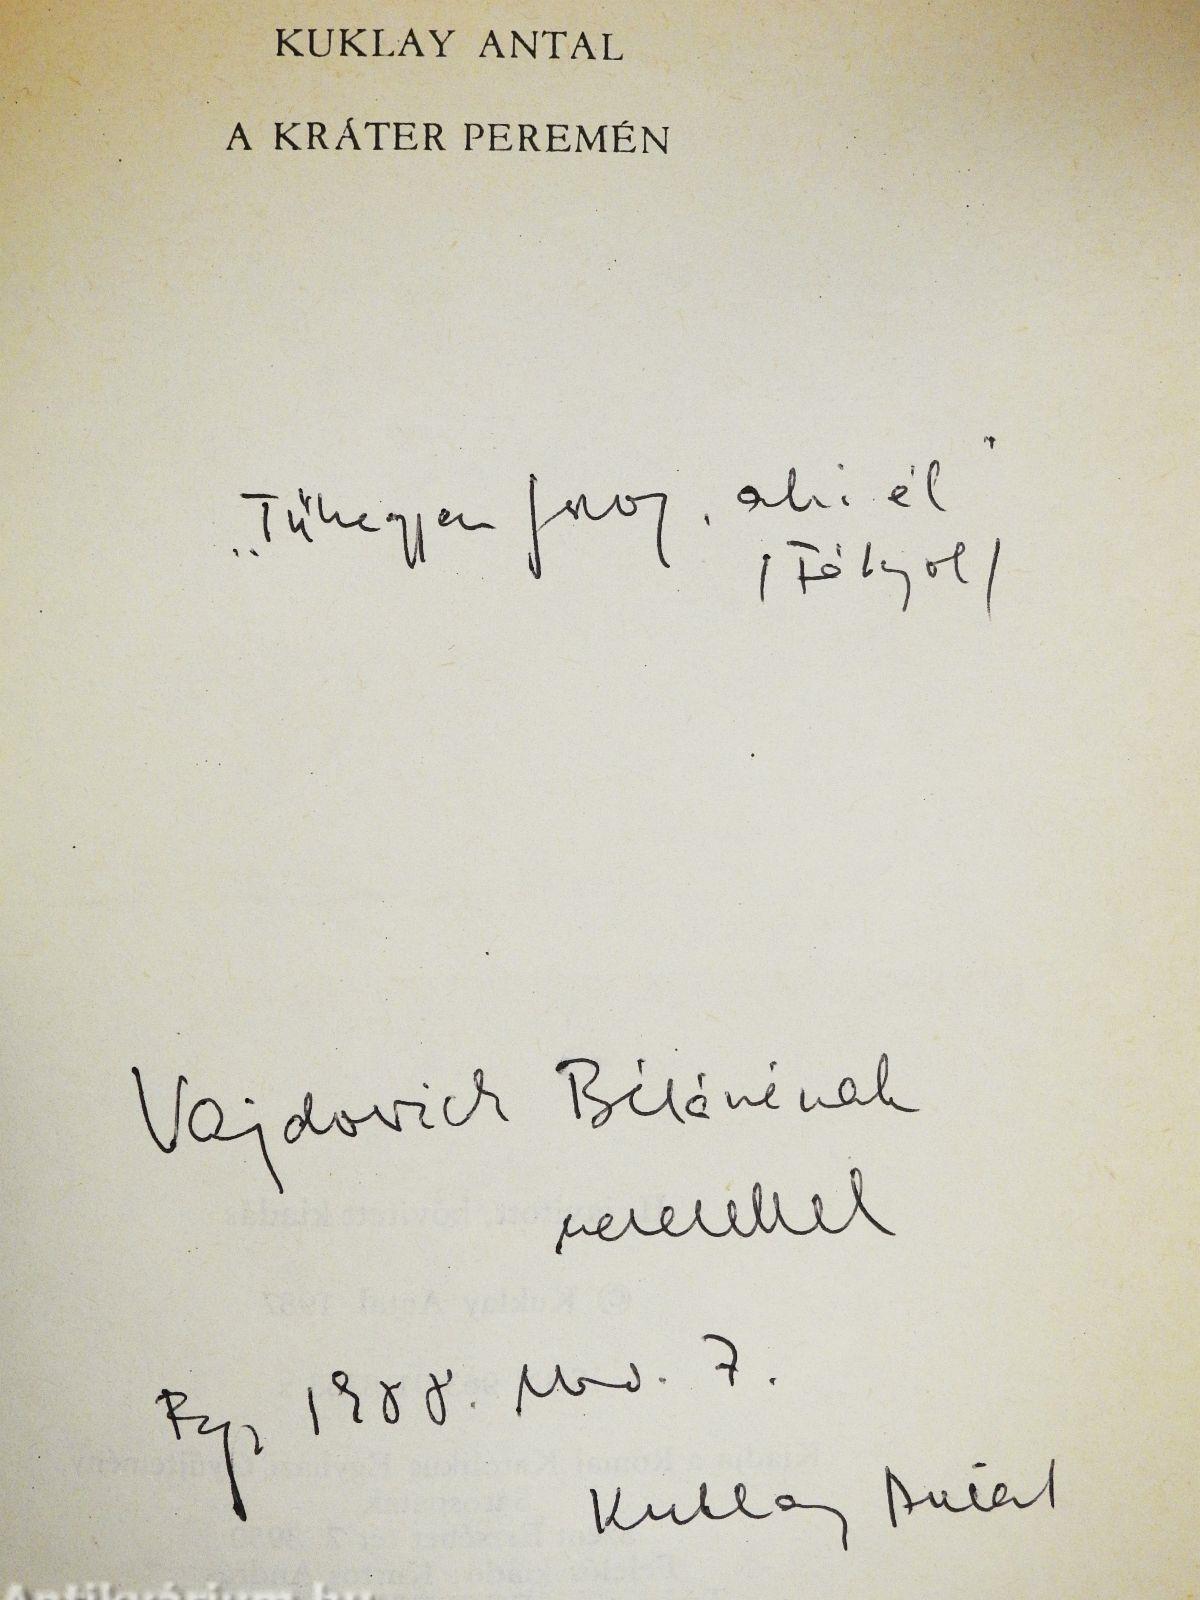 KUKLAY ANTAL
A KRÁTER PEREMÉN
„Tűhegyen forog, aki él"
/Fátyol/
Vajdovich Bélánénak
szeretettel
1988. Nov. 7.
Kuklay Antal
© Kuklay Antal 1987
Antikvárium.hu